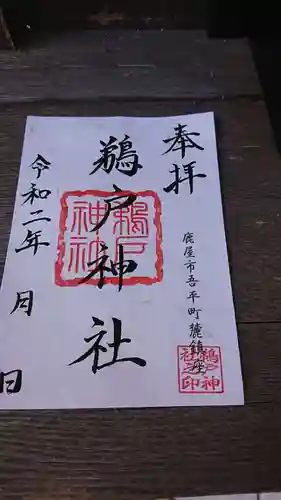 奉拝
鹿屋市吾平町麓鎮座
鵜戸神社
鵜戸神社
鵜戸神社之印
令和二年
月
日